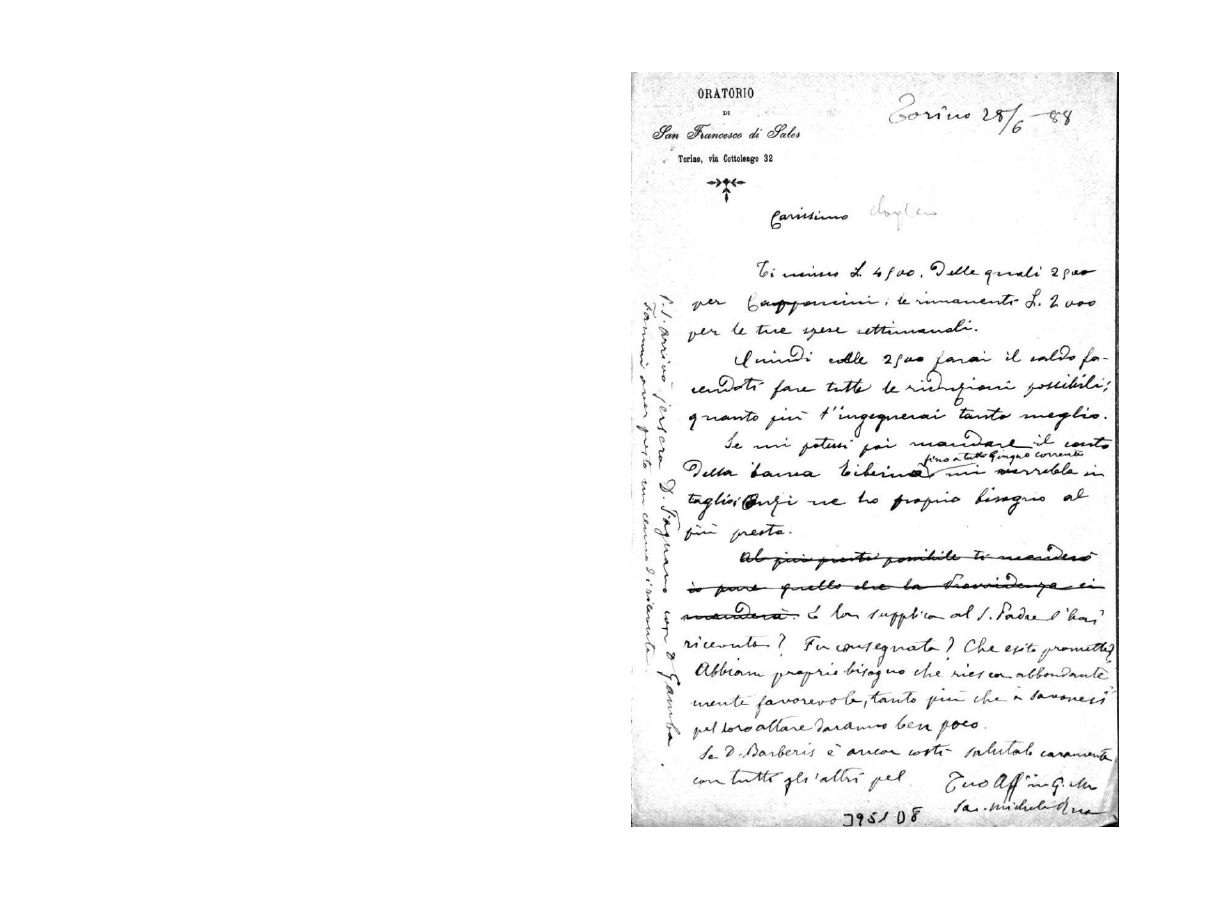 ORATORIO
DI
San Francesco di Sales
Torino, via Cottolengo 32
Torino 28/6 -88
Carissimo
Ti L. 4500. Delle quali 2500
per ; le rimanenti L. 2000
per le tue spese settimanali.
Quindi colle 2500 farai il saldo fa-
cendoti fare tutte le riduzioni possibili;
quanto più t'ingegnerai tanto meglio.
Se mi potessi poi mandare il conto
fino a tutto Giugno corrente
della banca Tiberina mi verrebbe in
taglio; Anzi ne ho proprio bisogno al
più presto.
Al più presto possibile ti manderò
io pure quello che la Provvidenza ci
manderà. E la supplica al S. Padre l'hai
ricevuta? Fu consegnata? Che esito promette?
Abbiam proprio bisogno che riesca abbondante
mente favorevole, tanto più che i Savonesi
pel loro altare daranno ben poco.
Se D. Barberis è ancor costì salutalo caramente
con tutti gli altri pel
Tuo Aff in G. e M
Sac. Michele Rua
P.S. Arrivò jersera D. Fagnano con D Gamba.
3951 D8